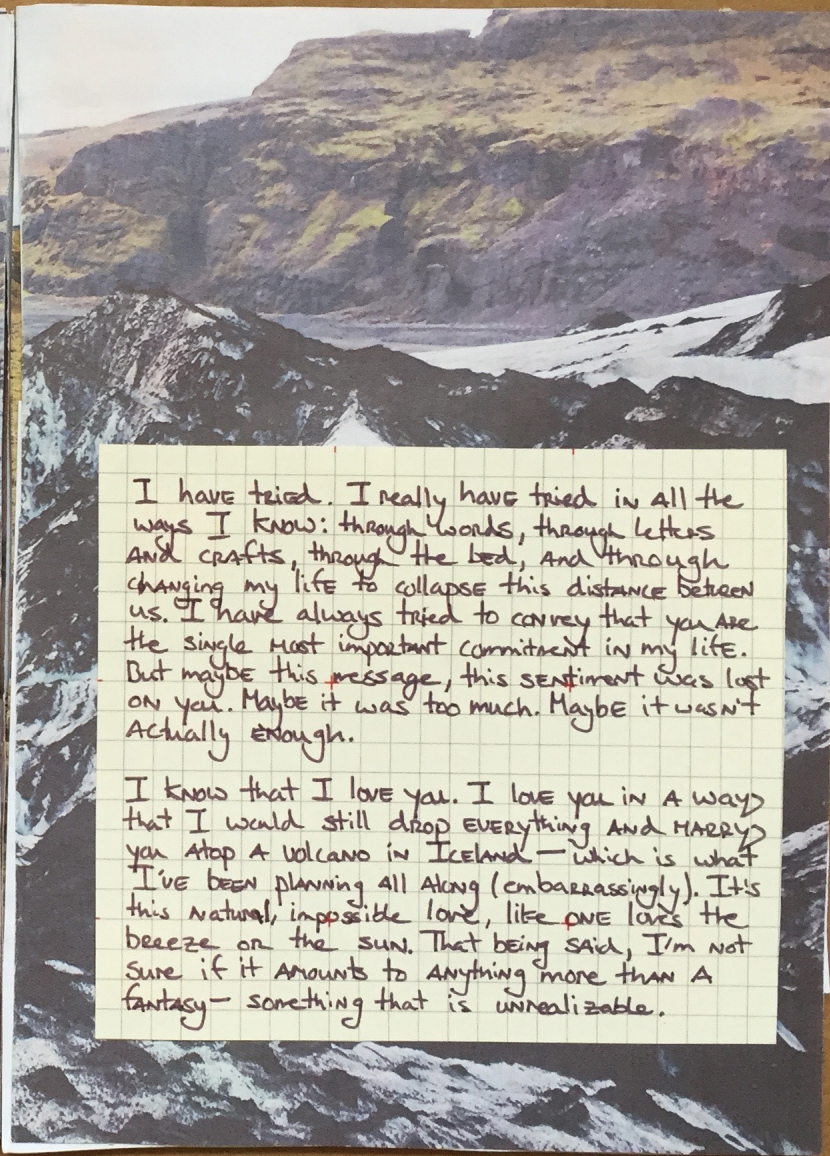 I have tried. I really have tried in all the
ways I know: through words, through letters
and crafts, through the bed, and through
changing my life to collapse this distance between
us. I have always tried to convey that you are
the single most important commitment in my life.
But maybe this message, this sentiment was lost
on you. Maybe it was too much. Maybe it wasn't
actually enough.
I know that I love you. I love you in a way
that I would still drop everything and marry
you atop a volcano in Iceland — which is what
I've been planning all along (embarrassingly). It's
this natural, impossible love, like one loves the
breeze or the sun. That being said, I'm not
sure if it amounts to anything more than a
fantasy — something that is unrealizable.